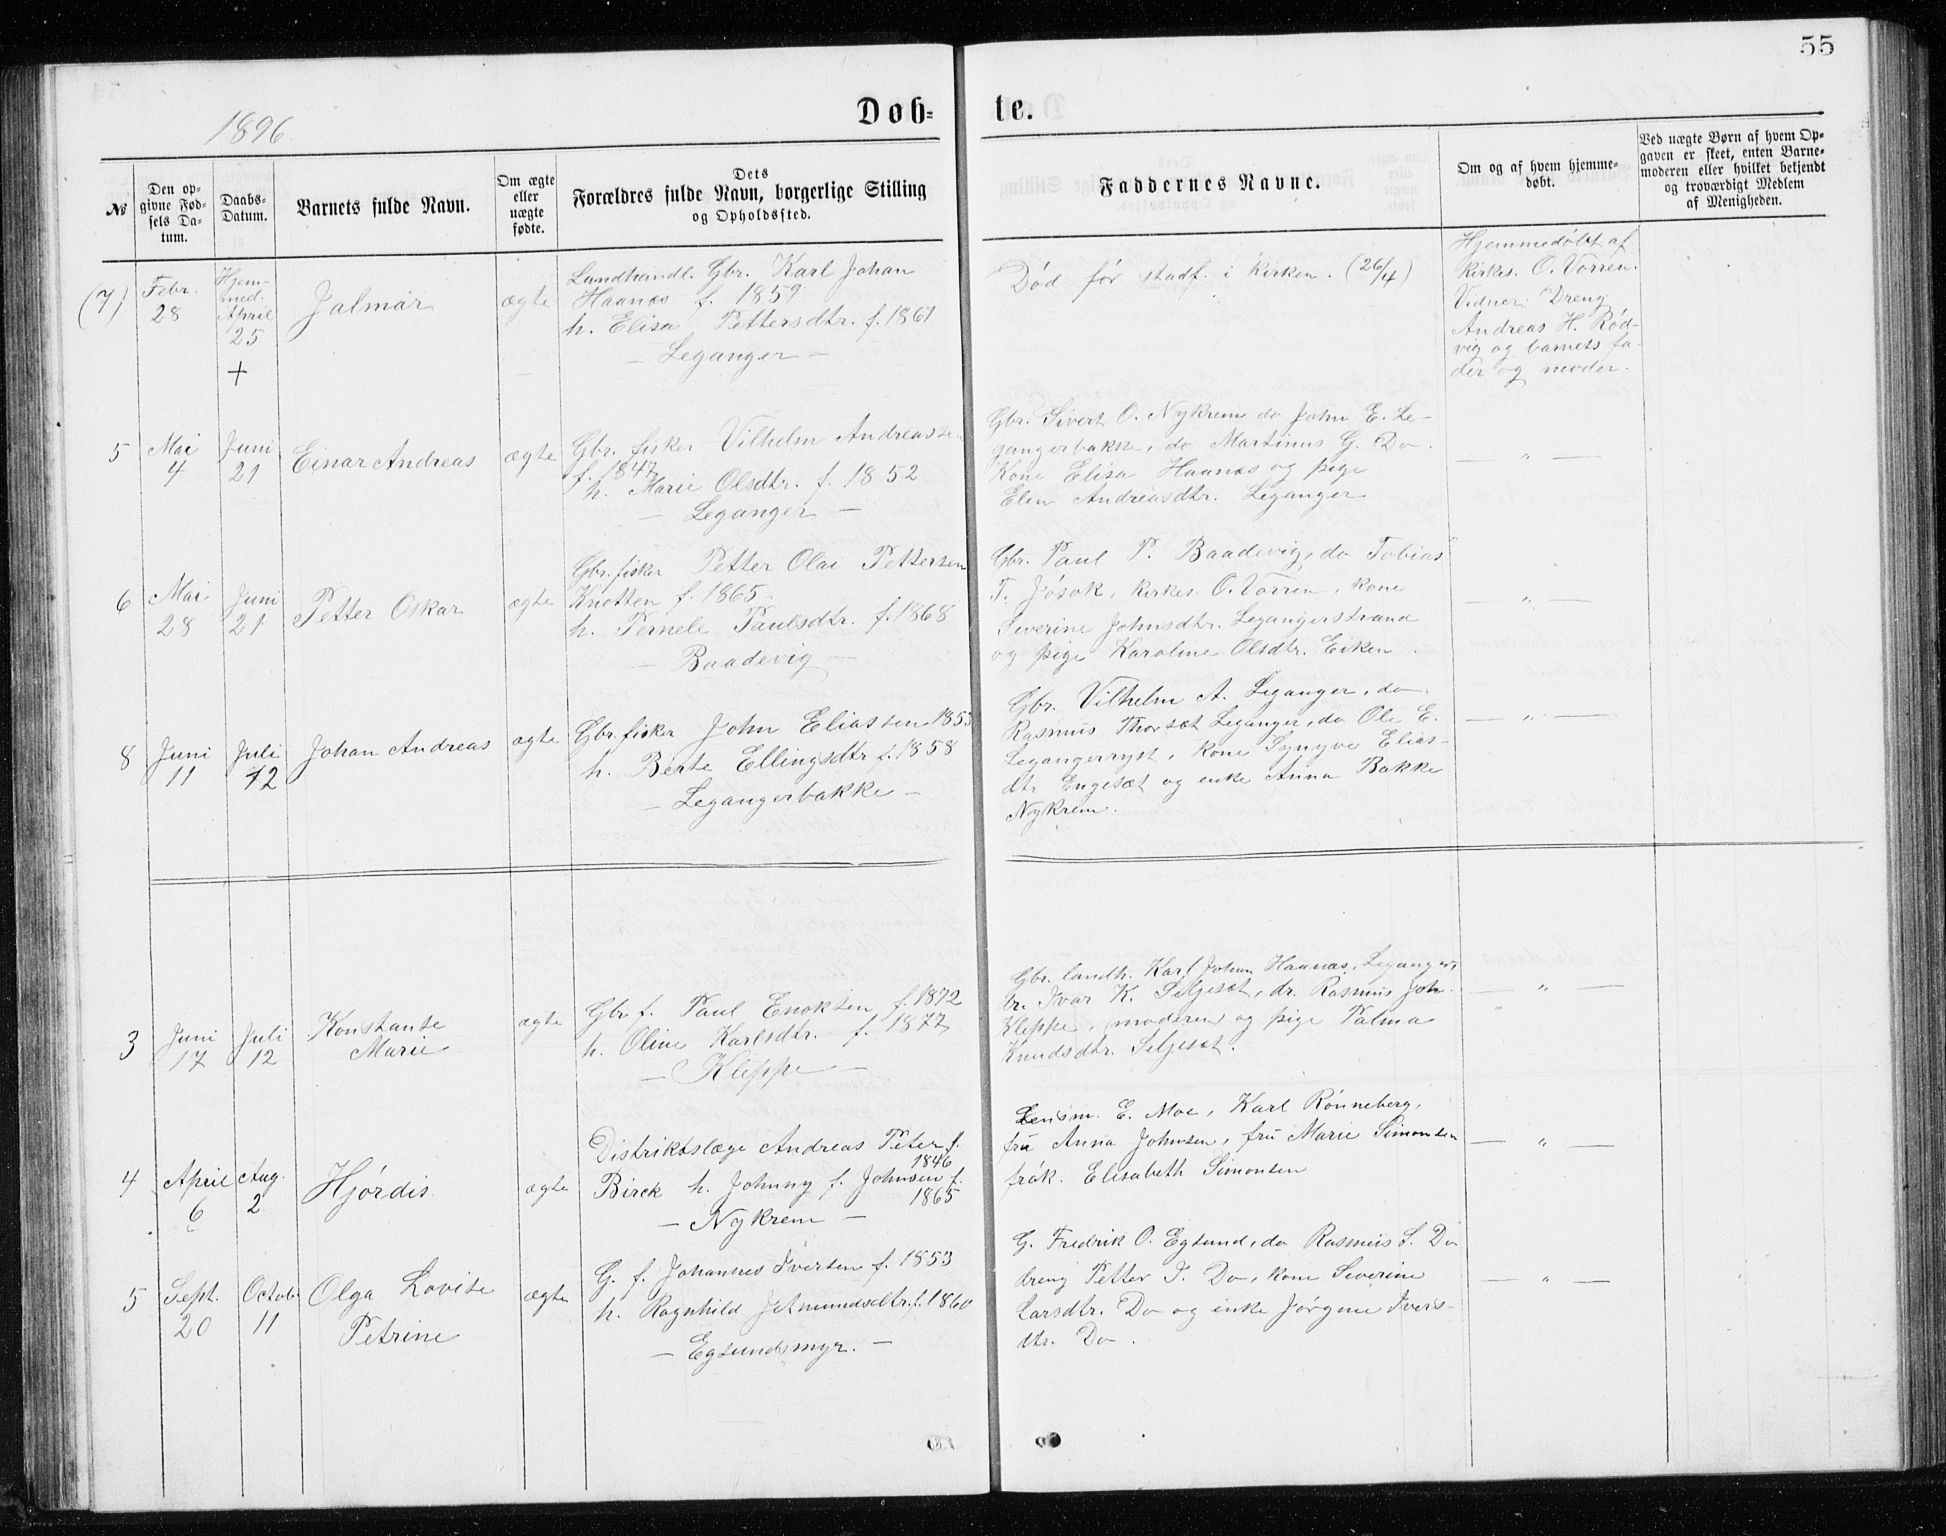 55
1896.
Døb-
te.
№
Den op-
givne Fød-
sels Da-
tum.
Daabs-
Datum.
Barnets fulde Navn.
Om ægte
eller
uægte
fødte.
Dets
Forældres fulde Navn, borgerlige Stilling
og Opholdssted.
Faddernes Navne.
Om og af hvem hjemme-
døbt.
Ved uægte Børn af hvem Op-
gaven er skeet, enten Barne-
moderen eller hvilket bekjendt
og troværdigt Medlem
af Menigheden.
(7)
Febr.
28
Hjem-
med.
April
25
+
Jalmar
ægte
Landhandl. Gbr. Karl Johan
Haanæs f. 1859
h. Elisa Pettersdtr. f. 1861
— Leganger —
Død før stadf. i kirken. (26/4)
Hjemmedøbt af
kirkes. O. Vorren.
Vidner: Dreng
Andreas H. Rød-
vig og barnets fa-
der og moder.
5
Mai
4
Juni
21
Einar Andreas
ægte
Gbr. fisker Vilhelm Andreassen
f. 1847
h. Marie Olsdtr. f. 1852
— Leganger —
Gbr. Sivert O. Nykrem do John E. Le-
gangerbakke, do Martinus G. Do.
Kone Elisa Haanæs og pige
Elen Andreasdtr. Leganger
— " —
6
Mai
28
Juni
21
Petter Oskar
ægte
Gbr. fisker Petter Olai Pettersen
Knotten f. 1865.
h. Pernele Paulsdtr. f. 1868
— Baadevig —
Gbr. Paul P. Baadevig, do Tobias
T. Jøsok, kirkes. O. Vorren, kone
Severine Johnsdtr. Legangerstrand
og pige Karoline Olsdtr. Eiken.
— " —
8
Juni
11
Juli
12
Johan Andreas
ægte
Gbr. fisker John Eliassen 1853
h. Berte Ellingsdtr f. 1858
— Legangerbakke —
Gbr. Vilhelm A. Leganger, do
Rasmus Thorsæt Leganger, do Ole E.
Legangerryst, kone Synyve Elias-
dtr Engesæt og enke Anna Bakke
Nykrem.
— " —
3
Juni
17
Juli
12
Konstanse
Marie
ægte
Gbr. f. Paul Enoksen f. 1872
h. Oline Karlsdtr. f. 1877
— Kleppe —
Gbr. landh. Karl Johan Haanæs, Leganger,
dr. Ivar K. Seljesæt, dr. Rasmus Joh.
Kleppe, moderen og pige Palma
Knudsdtr. Seljesæt.
— " —
4
April
6
Aug.
2
Hjørdis
ægte
Distriktslæge Andreas Peter f.
1846
Birck h. Johnny f. Johnsen f.
1865
— Nykrem —
Lensm. E. Moe, Karl Rønneberg,
fru Anna Johnsen, fru Marie Simonsen
frøk. Elisabeth Simonsen
— " —
5
Sept.
20
Octob.
11
Olga Lovise
Petrine
ægte
G. f. Johannes Iversen f. 1853
h. Ragnhild Jetmundsdtr. f. 1860
— Egsundsmyr. —
G. Fredrik O. Egsund, do Rasmus S. Do
dreng Petter I. Do, kone Severine
Larsdtr. Do og enke Jørgine Ivers-
dtr. Do.
— " —